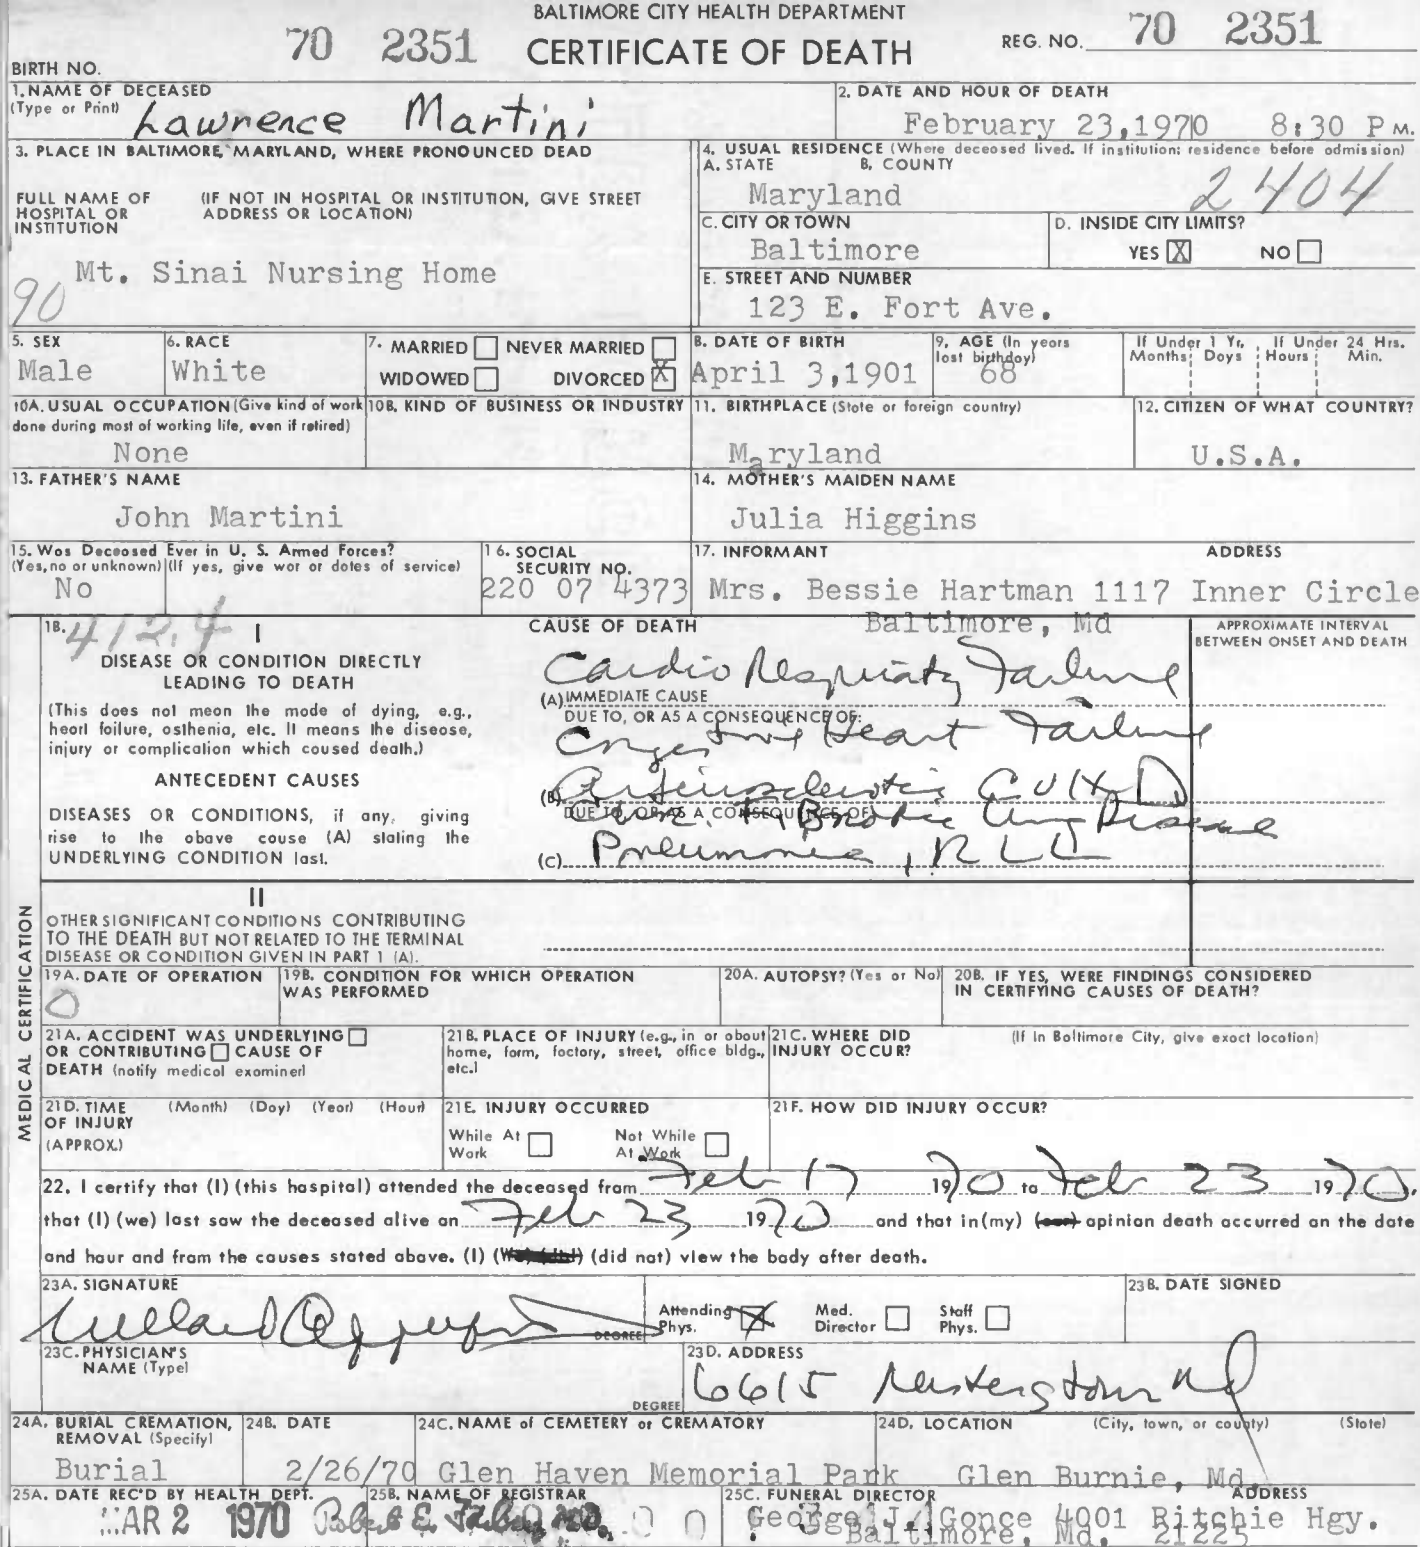 BALTIMORE CITY HEALTH DEPARTMENT
70 2351 CERTIFICATE OF DEATH REG. NO. 70 2351
BIRTH NO.
1. NAME OF DECEASED
(Type or Print) Lawrence Martini
2. DATE AND HOUR OF DEATH
February 23,1970 8:30 P M.
3. PLACE IN BALTIMORE, MARYLAND, WHERE PRONOUNCED DEAD
FULL NAME OF HOSPITAL OR INSTITUTION
(IF NOT IN HOSPITAL OR INSTITUTION, GIVE STREET ADDRESS OR LOCATION)
Mt. Sinai Nursing Home
90
4. USUAL RESIDENCE (Where deceased lived. If institution: residence before admission)
A. STATE B. COUNTY
Maryland 2404
C. CITY OR TOWN
Baltimore
D. INSIDE CITY LIMITS?
YES X NO
E. STREET AND NUMBER
123 E. Fort Ave.
5. SEX
Male
6. RACE
White
7. MARRIED NEVER MARRIED
WIDOWED DIVORCED X
8. DATE OF BIRTH
April 3,1901
9. AGE (In years
last birthday)
68
If Under 1 Yr. If Under 24 Hrs.
Months Days Hours Min.
10A. USUAL OCCUPATION (Give kind of work
done during most of working life, even if retired)
None
10B. KIND OF BUSINESS OR INDUSTRY
11. BIRTHPLACE (State or foreign country)
Maryland
12. CITIZEN OF WHAT COUNTRY?
U.S.A.
13. FATHER'S NAME
John Martini
14. MOTHER'S MAIDEN NAME
Julia Higgins
15. Was Deceased Ever in U. S. Armed Forces?
(Yes, no or unknown) (If yes, give war or dates of service)
No
16. SOCIAL
SECURITY NO.
220 07 4373
17. INFORMANT ADDRESS
Mrs. Bessie Hartman 1117 Inner Circle
Baltimore, Md
18. 412.4 I
DISEASE OR CONDITION DIRECTLY
LEADING TO DEATH
(This does not mean the mode of dying, e.g.,
heart failure, asthenia, etc. It means the disease,
injury or complication which caused death.)
ANTECEDENT CAUSES
DISEASES OR CONDITIONS, if any, giving
rise to the above cause (A) stating the
UNDERLYING CONDITION last.
CAUSE OF DEATH
APPROXIMATE INTERVAL
BETWEEN ONSET AND DEATH
Cardio Respiratory Failure
(A) IMMEDIATE CAUSE
DUE TO, OR AS A CONSEQUENCE OF:
Congestive Heart Failure
(B) Arteriosclerotic C V H D
DUE TO, OR AS A CONSEQUENCE OF:
Fibrotic Lung Disease
(C) Pneumonia, R L L
II
OTHER SIGNIFICANT CONDITIONS CONTRIBUTING
TO THE DEATH BUT NOT RELATED TO THE TERMINAL
DISEASE OR CONDITION GIVEN IN PART 1 (A).
MEDICAL CERTIFICATION
19A. DATE OF OPERATION
0
19B. CONDITION FOR WHICH OPERATION
WAS PERFORMED
20A. AUTOPSY? (Yes or No)
20B. IF YES, WERE FINDINGS CONSIDERED
IN CERTIFYING CAUSES OF DEATH?
21A. ACCIDENT WAS UNDERLYING
OR CONTRIBUTING CAUSE OF
DEATH (notify medical examiner)
21B. PLACE OF INJURY (e.g., in or about
home, farm, factory, street, office bldg.,
etc.)
21C. WHERE DID (If in Baltimore City, give exact location)
INJURY OCCUR?
21D. TIME (Month) (Day) (Year) (Hour)
OF INJURY
(APPROX.)
21E. INJURY OCCURRED
While At Work Not While At Work
21F. HOW DID INJURY OCCUR?
22. I certify that (I) (this hospital) attended the deceased from Feb 17 1970 to Feb 23 1970,
that (I) (we) last saw the deceased alive on Feb 23 1970 and that in (my) (our) opinion death occurred on the date
and hour and from the causes stated above. (I) (We) (did) (did not) view the body after death.
23A. SIGNATURE
DEGREE
Attending Phys. X Med. Director Staff Phys.
23B. DATE SIGNED
23C. PHYSICIAN'S
NAME (Type)
DEGREE
23D. ADDRESS
6615 Reisterstown Rd
24A. BURIAL CREMATION,
REMOVAL (Specify)
Burial
24B. DATE
2/26/70
24C. NAME of CEMETERY or CREMATORY
Glen Haven Memorial Park
24D. LOCATION (City, town, or county) (State)
Glen Burnie, Md
25A. DATE REC'D BY HEALTH DEPT.
MAR 2 1970
25B. NAME OF REGISTRAR
Robert E. Farber, M.D.
25C. FUNERAL DIRECTOR ADDRESS
George J. Gonce 4001 Ritchie Hgy.
Baltimore, Md. 21225